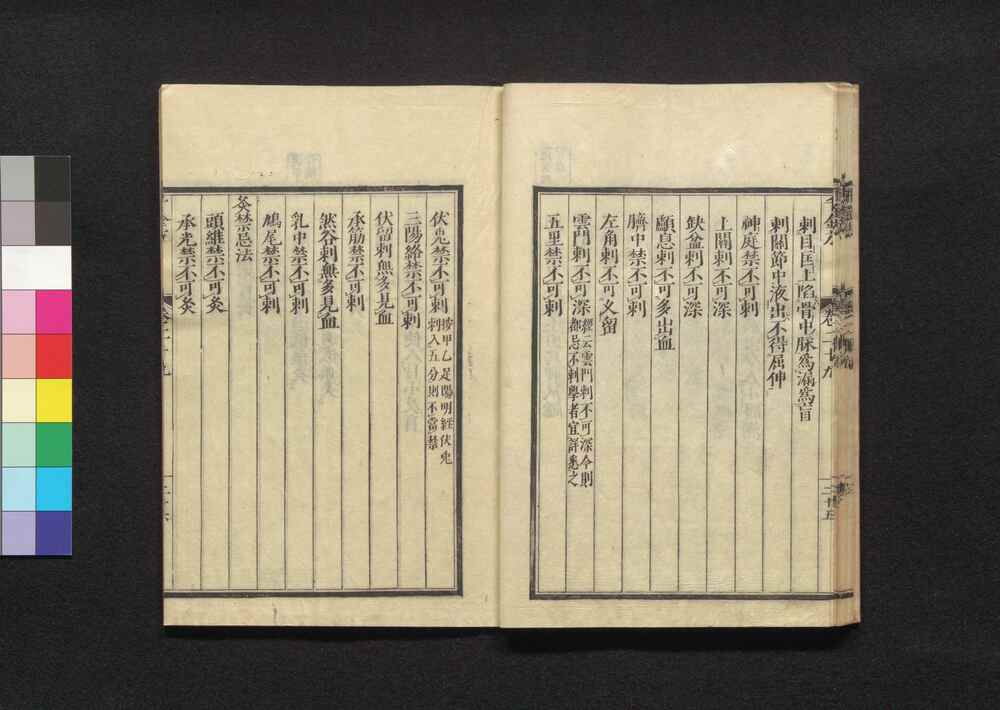 刺目匡上陷骨中脉爲漏爲盲
刺關節中液出不得屈伸
神庭禁不可刺
上關刺不可深
缺盆刺不可深
顱息刺不可多出血
臍中禁不可刺
左角刺不可久留
雲門刺不可深
經云雲門刺不可深今則
都忌不刺學者宜詳悉之
五里禁不可刺
伏兎禁不可刺
按甲乙足陽明經伏兎
刺入五分則不當禁
三陽絡禁不可刺
伏留刺無多見血
承筋禁不可刺
然谷刺無多見血
乳中禁不可刺
鳩尾禁不可刺
灸禁忌法
頭維禁不可灸
承光禁不可灸